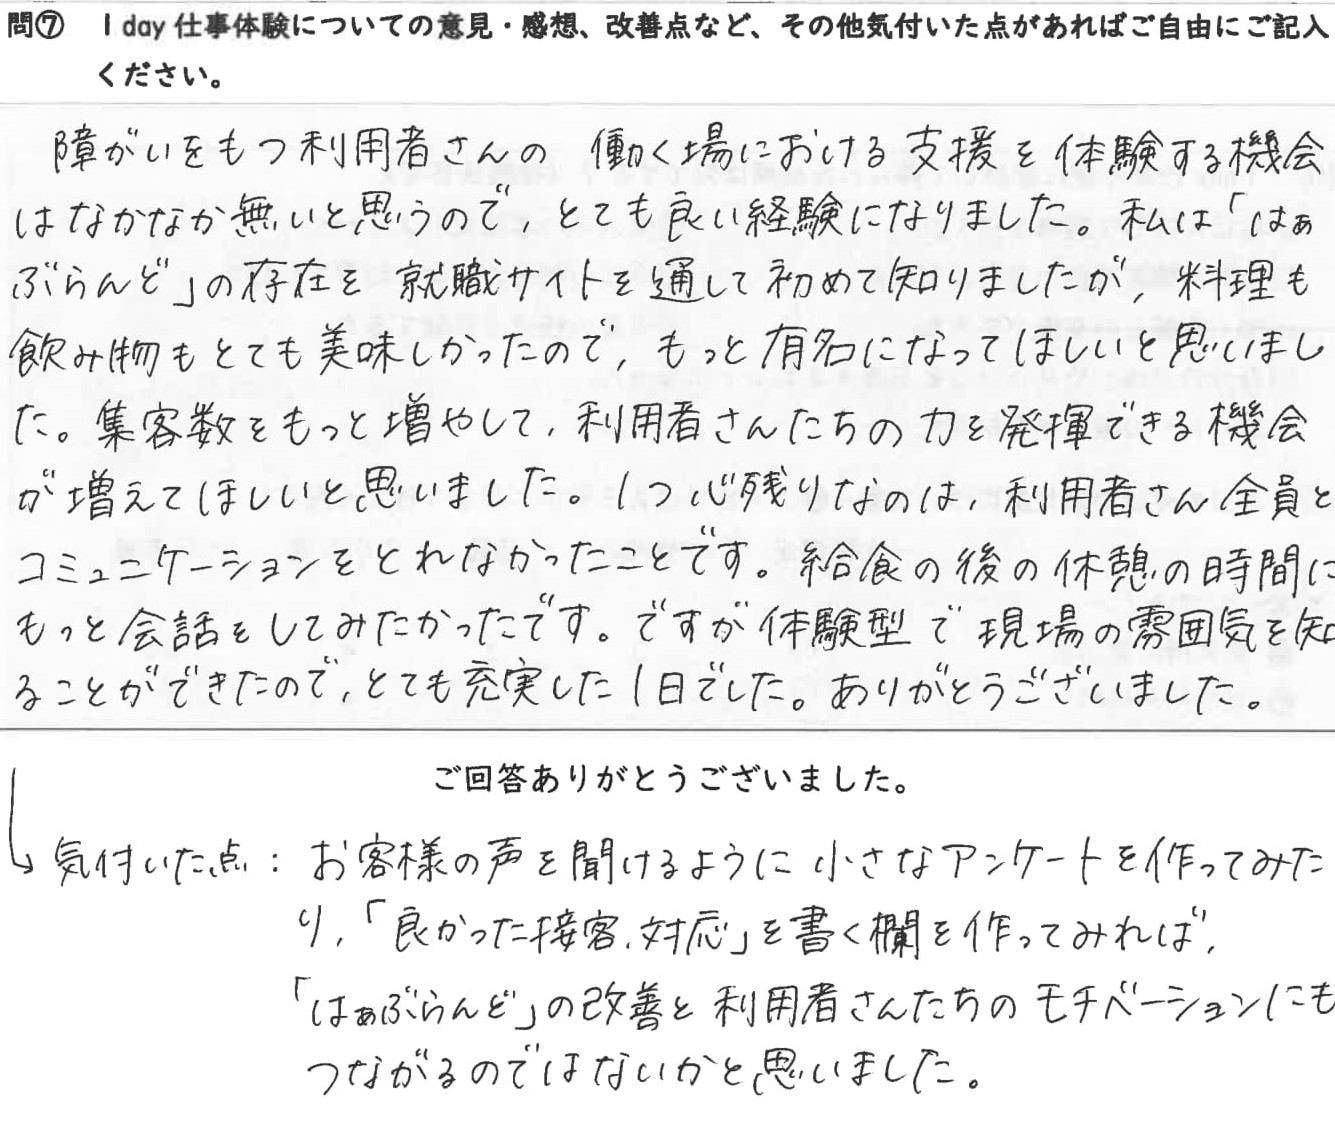 問⑦ 1day仕事体験についての意見・感想、改善点など、その他気付いた点があればご自由にご記入
ください。
障がいをもつ利用者さんの 働く場における支援を体験する機会
はなかなか無いと思うので、とても良い経験になりました。私は「はぁ
ぶらんど」の存在を 就職サイトを通して初めて知りましたが、料理も
飲み物もとても美味しかったので、もっと有名になってほしいと思いまし
た。集客数をもっと増やして、利用者さんたちの力を発揮できる機会
が増えてほしいと思いました。1つ心残りなのは、利用者さん全員と
コミュニケーションをとれなかったことです。給食の後の休憩の時間に
もっと会話をしてみたかったです。ですが体験型で現場の雰囲気を知
ることができたので、とても充実した1日でした。ありがとうございました。
ご回答ありがとうございました。
↳ 気付いた点：お客様の声を聞けるように小さなアンケートを作ってみた
り、「良かった接客、対応」を書く欄を作ってみれば、
「はぁぶらんど」の改善と利用者さんたちのモチベーションにも
つながるのではないかと思いました。